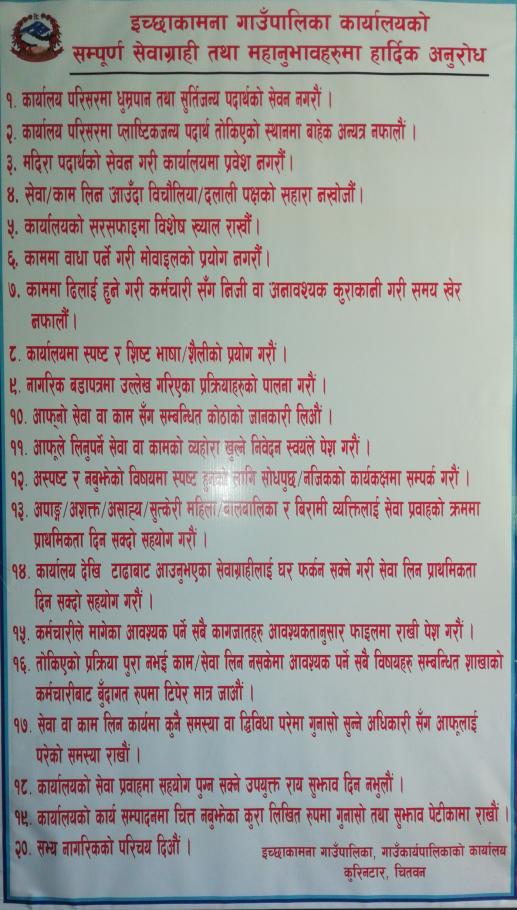 इच्छाकामना गाउँपालिका कार्यालयको
सम्पूर्ण सेवाग्राही तथा महानुभावहरुमा हार्दिक अनुरोध
१. कार्यालय परिसरमा धुम्रपान तथा सुर्तिजन्य पदार्थको सेवन नगरौं ।
२. कार्यालय परिसरमा प्लाष्टिकजन्य पदार्थ तोकिएको स्थानमा बाहेक अन्यत्र नफालौं ।
३. मदिरा पदार्थको सेवन गरी कार्यालयमा प्रवेश नगरौं ।
४. सेवा/काम लिन आउँदा विचौलिया/दलाली पक्षको सहारा नखोजौं ।
५. कार्यालयको सरसफाइमा विशेष ख्याल राखौं ।
६. काममा वाधा पर्ने गरी मोवाइलको प्रयोग नगरौं ।
७. काममा ढिलाई हुने गरी कर्मचारी सँग निजी वा अनावश्यक कुराकानी गरी समय खेर
नफालौं ।
८. कार्यालयमा स्पष्ट र शिष्ट भाषा/शैलीको प्रयोग गरौं ।
९. नागरिक बडापत्रमा उल्लेख गरिएका प्रक्रियाहरुको पालना गरौं ।
१०. आफ्नो सेवा वा काम सँग सम्बन्धित कोठाको जानकारी लिऔं ।
११. आफूले लिनुपर्ने सेवा वा कामको व्यहोरा खुल्ने निवेदन स्वयंले पेश गरौं ।
१२. अस्पष्ट र नबुझेको विषयमा स्पष्ट हुनको लागि सोधपुछ/नजिकको कार्यकक्षमा सम्पर्क गरौं ।
१३. अपाङ्ग/अशक्त/असाह्य/सुत्केरी महिला/बालबालिका र बिरामी व्यक्तिलाई सेवा प्रवाहको क्रममा
प्राथमिकता दिन सक्दो सहयोग गरौं ।
१४. कार्यालय देखि टाढाबाट आउनुभएका सेवाग्राहीलाई घर फर्कन सक्ने गरी सेवा लिन प्राथमिकता
दिन सक्दो सहयोग गरौं ।
१५. कर्मचारीले मागेका आवश्यक पर्ने सबै कागजातहरु आवश्यकतानुसार फाइलमा राखी पेश गरौं ।
१६. तोकिएको प्रक्रिया पुरा नभई काम/सेवा लिन नसकेमा आवश्यक पर्ने सबै विषयहरु सम्बन्धित शाखाको
कर्मचारीबाट बुँदागत रुपमा टिपेर मात्र जाऔं ।
१७. सेवा वा काम लिन कार्यमा कुनै समस्या वा द्विविधा परेमा गुनासो सुन्ने अधिकारी सँग आफूलाई
परेको समस्या राखौं ।
१८. कार्यालयको सेवा प्रवाहमा सहयोग पुग्न सक्ने उपयुक्त राय सुझाव दिन नभुलौं ।
१९. कार्यालयको कार्य सम्पादनमा चित्त नबुझेका कुरा लिखित रुपमा गुनासो तथा सुझाव पेटीकामा राखौं ।
२०. सभ्य नागरिकको परिचय दिऔं ।
इच्छाकामना गाउँपालिका, गाउँकार्यपालिकाको कार्यालय
कुरिनटार, चितवन